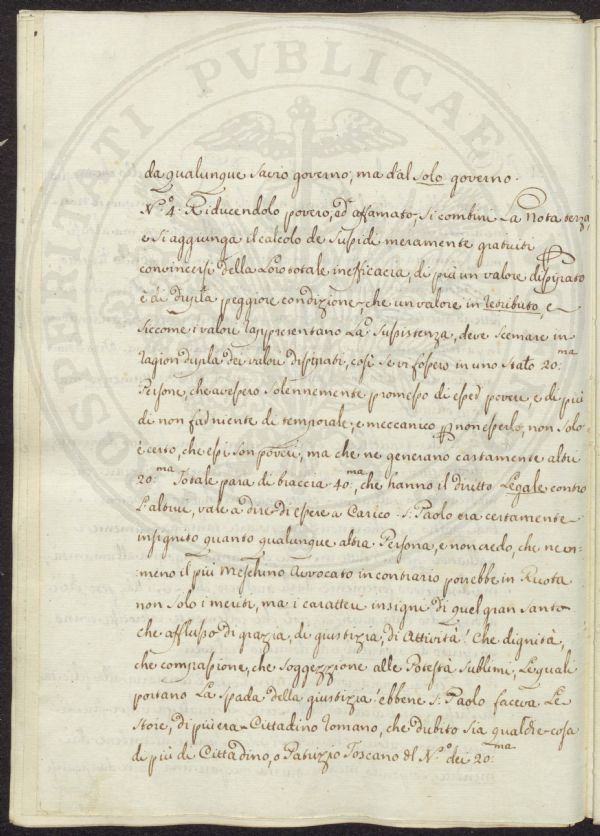 da qualunque Savio governo, ma dal solo governo.
N.º 4. Riducendolo povero, ad affamato, si combini La Nota terza,
e Si aggiunga il calcolo de Susidi meramente gratuiti
convincersi della Loro totale inefficacia, di più un valore dissipato
è di dupla peggiore condizione, che un valore in retributo, e
Siccome i valori rappresentano La Susistenza, deve Scemare in
ragion dupla dei valori dissipati, così se vi fossero in uno Stato 20:ma
Persone, che avessero Solennemente promesso di esser poveri, e di più
di non far niente di temporale, e meccanico per non esserlo, non Solo
è certo, che essi son poveri, ma che ne generano castamente altri
20:ma Totale para di braccia 40:ma, che hanno il diritto Legale contro
L'altrui, vale a dire di essere a Carico. S. Paolo era certamente
insignito quanto qualunque altra Persona, e non credo, che nem-
meno il più Meschino Avvocato in contrario porrebbe in Ruota
non Solo i meriti, ma i caratteri insigni di quel gran Santo
che afflusso di grazia, di giustizia, di Attività! Che dignità,
che compassione, che Soggezzione alle Potestà Sublimi, Le quali
portano La Spada della giustizia! ebbene S. Paolo faceva Le
Stoie, di più era Cittadino romano, che dubito Sia qualche cosa
di più di Cittadino, o Patrizio Toscano del N.º dei 20:ma
PROSPERITATI PVBLICAE